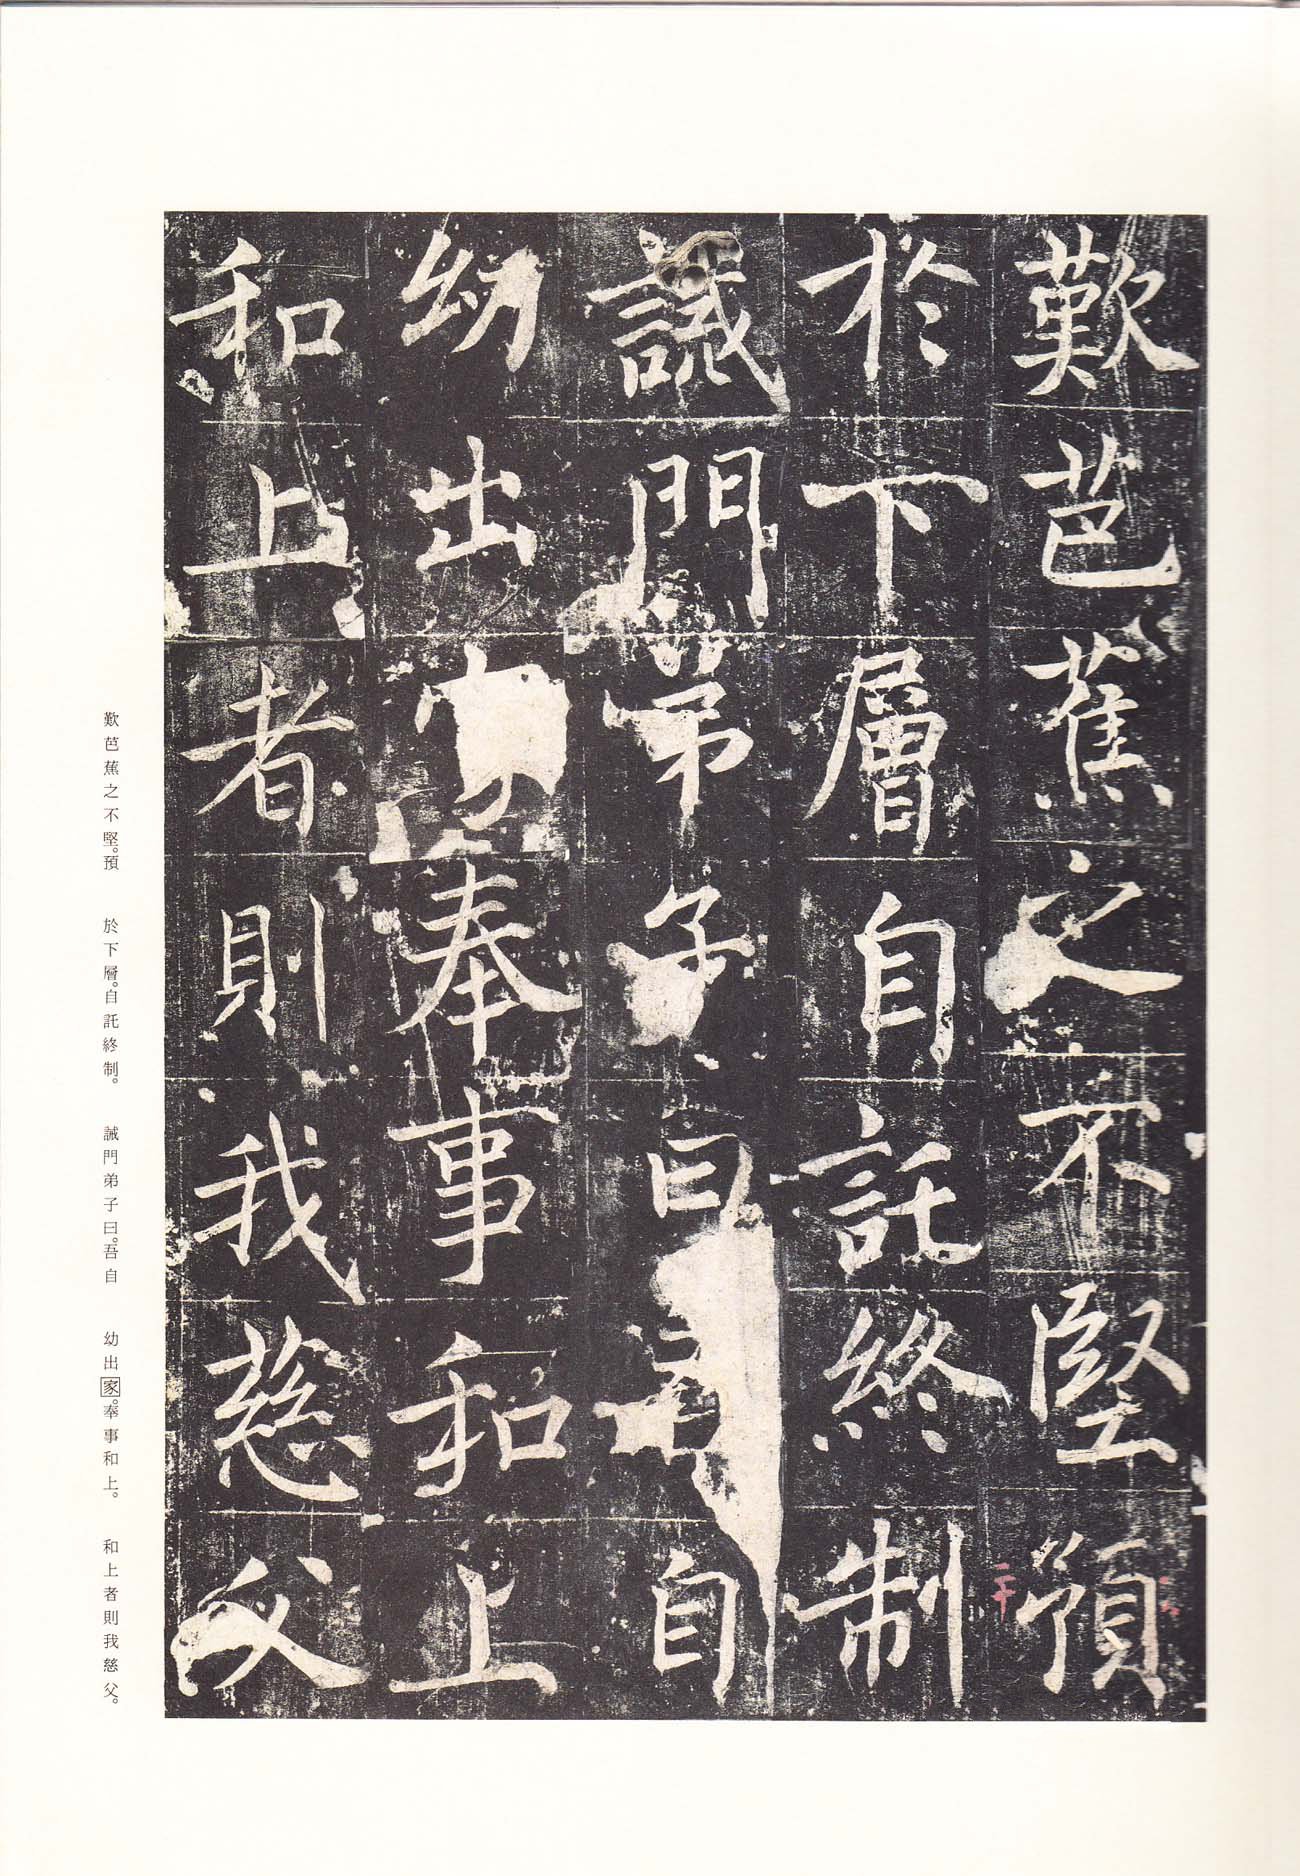 歎芭蕉之不堅預
於下層自託終制
誡門弟子曰吾自
幼出家奉事和上
和上者則我慈父
歎芭蕉之不堅。預　於下層。自託終制。　誡門弟子曰。吾自　幼出家。奉事和上。　和上者則我慈父。